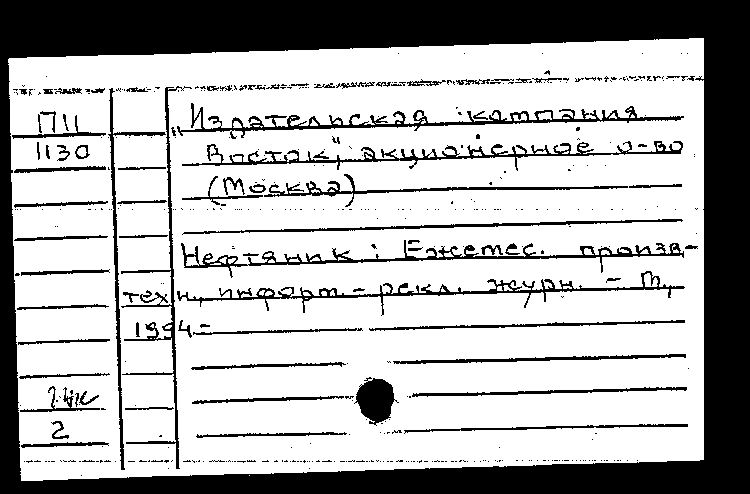 П11
1130
„Издательская компания
Восток", акционерное о-во
(Москва)
Нефтяник : Ежемес. произв-
техн., информ.-рекл. журн. - М.,
1994-
2